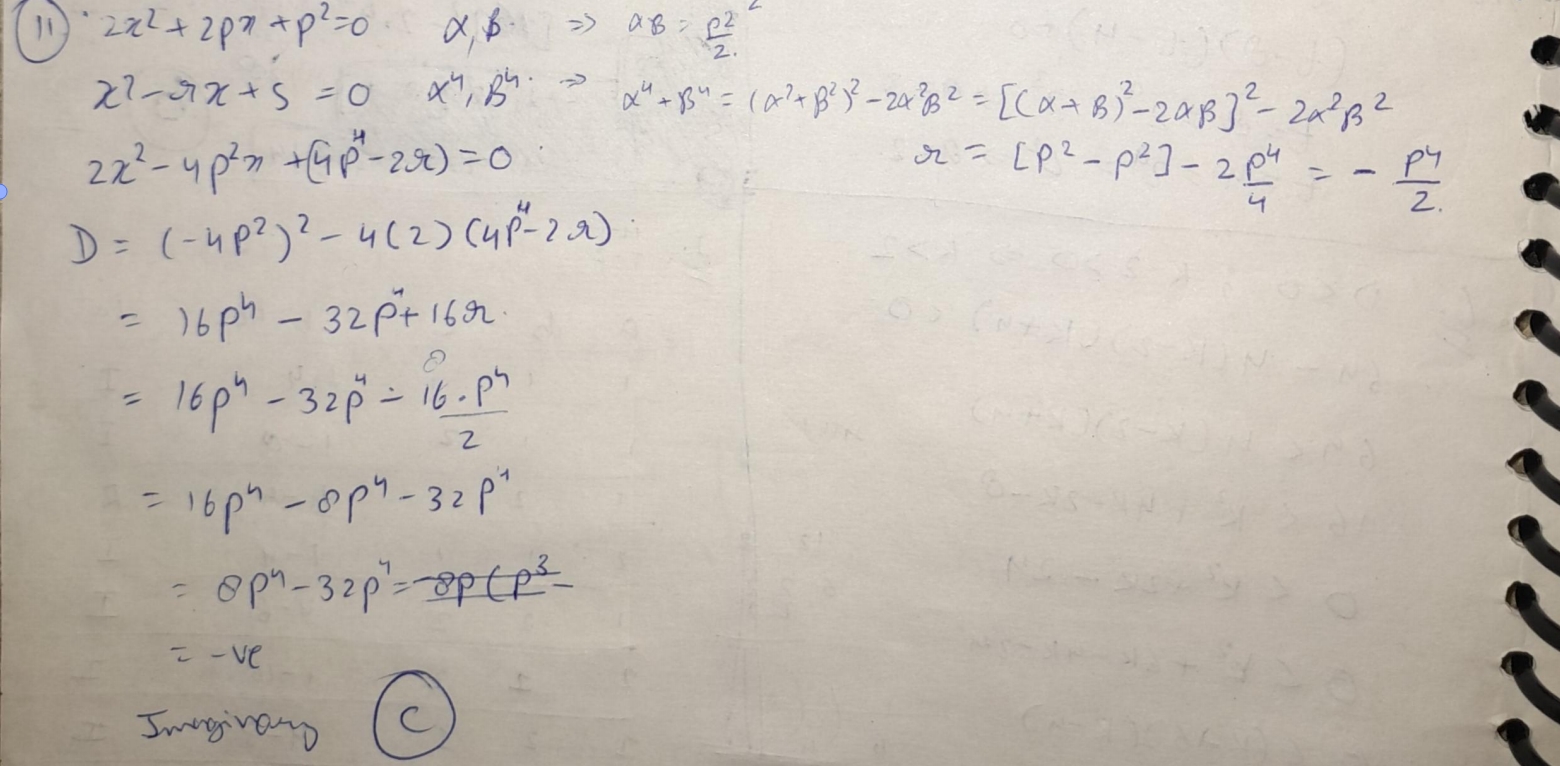 (11) 2x² + 2px + p² = 0    α, β    ⇒    αβ = p²/2.
x² - rx + s = 0    α⁴, β⁴    ⇒    α⁴ + β⁴ = (α² + β²)² - 2α²β² = [(α + β)² - 2αβ]² - 2α²β²
2x² - 4p²x + (4p⁴ - 2r) = 0    r = [p² - p²] - 2p⁴/4 = - p⁴/2.
D = (-4p²)² - 4(2)(4p⁴ - 2r)
= 16p⁴ - 32p⁴ + 16r.
8
= 16p⁴ - 32p⁴ - 16.p⁴/2
= 16p⁴ - 8p⁴ - 32p⁴
= 8p⁴ - 32p⁴ = 8p(p³ -
= -ve
Imaginary (C)